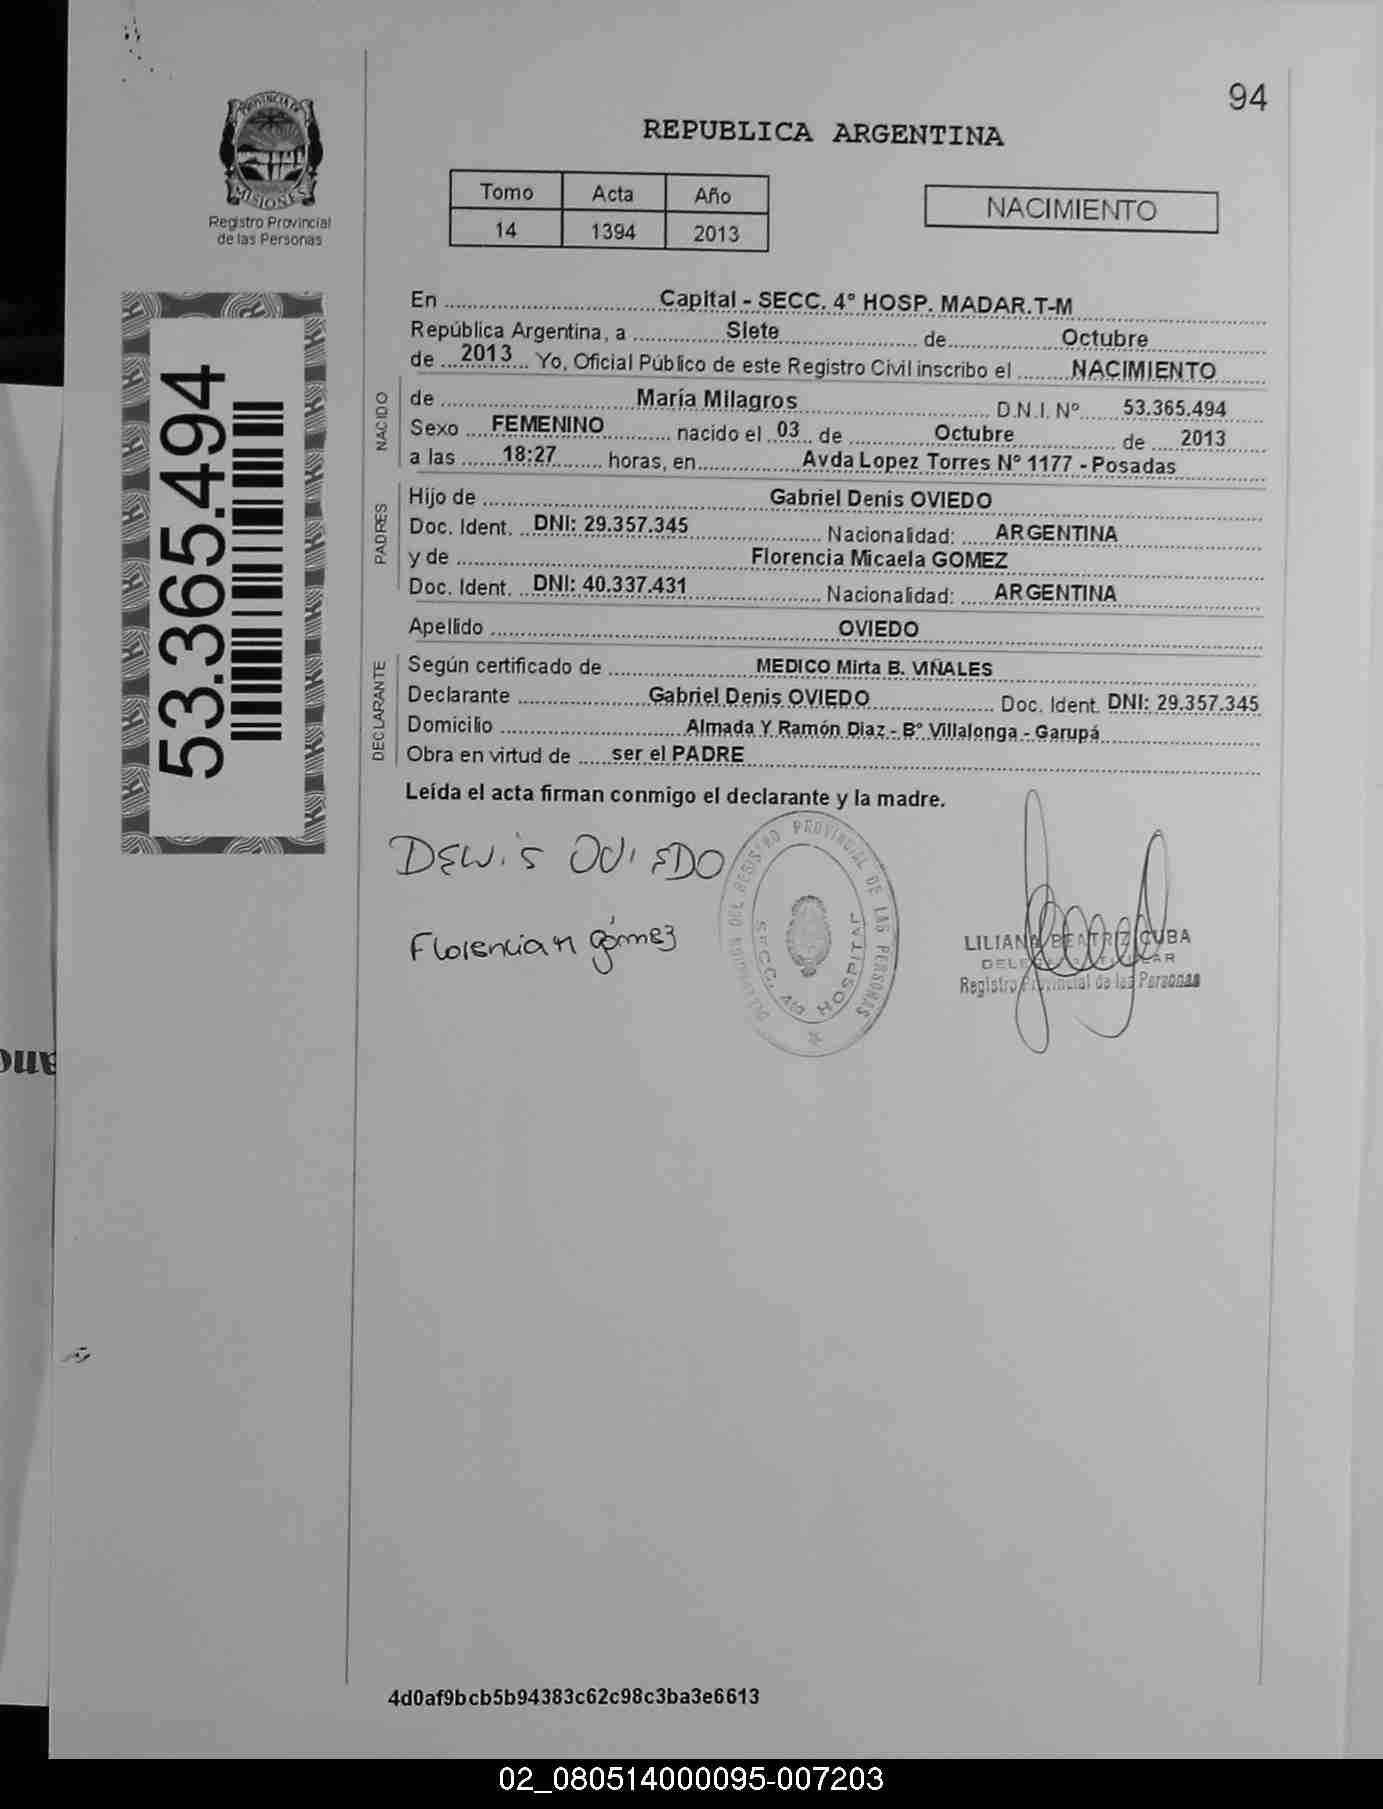 94
PROVINCIA DE
MISIONES
Registro Provincial
de las Personas
REPUBLICA ARGENTINA
Tomo Acta Año
14 1394 2013
NACIMIENTO
53.365.494
En Capital - SECC. 4° HOSP. MADAR.T-M
República Argentina, a SIete de Octubre
de 2013 Yo, Oficial Público de este Registro Civil inscribo el NACIMIENTO
NACIDO
de María Milagros D.N.I. Nº 53.365.494
Sexo FEMENINO nacido el 03 de Octubre de 2013
a las 18:27 horas, en Avda Lopez Torres N° 1177 - Posadas
PADRES
Hijo de Gabriel Denis OVIEDO
Doc. Ident. DNI: 29.357.345 Nacionalidad: ARGENTINA
y de Florencia Micaela GOMEZ
Doc. Ident. DNI: 40.337.431 Nacionalidad: ARGENTINA
Apellido OVIEDO
DECLARANTE
Según certificado de MEDICO Mirta B. VIÑALES
Declarante Gabriel Denis OVIEDO Doc. Ident. DNI: 29.357.345
Domicilio Almada Y Ramón Diaz - B° Villalonga - Garupá
Obra en virtud de ser el PADRE
Leída el acta firman conmigo el declarante y la madre.
DENIS OVIEDO
Florencia M gómez
DELEGACION DEL REGISTRO PROVINCIAL DE LAS PERSONAS
SECC. 4ta HOSPITAL
LILIANA BEATRIZ CUBA
Registro Provincial de las Personas
4d0af9bcb5b94383c62c98c3ba3e6613
02_080514000095-007203